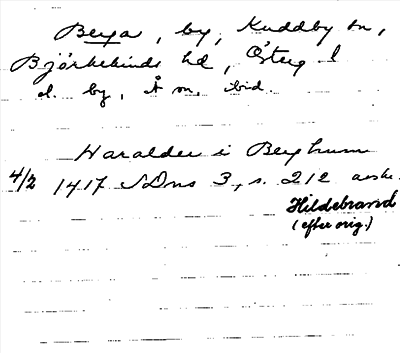 Berga, by, Kuddby sn,
Björkekinds hd, Österg l
d. by, Å sn, ibid.
Haralder i Berghum
4/2 1417 SDns 3, s. 212 avskr.
Hildebrand
(efter orig.)